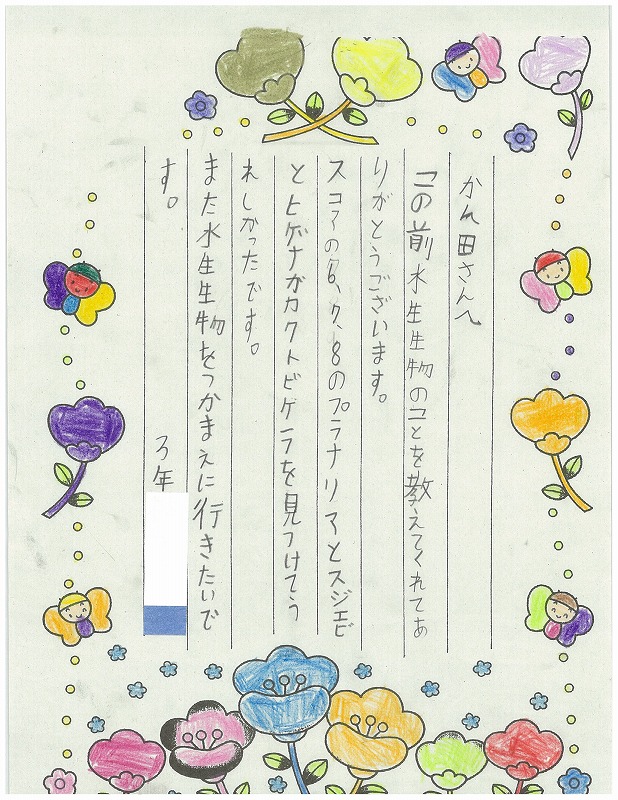 かん田さんへ
この前水生生物のことを教えてくれてあ
りがとうございます。
スコアの6、7、8のプラナリアとスジエビ
とヒゲナガカクトビケラを見つけてう
れしかったです。
また水生生物をつかまえに行きたいで
す。
3年